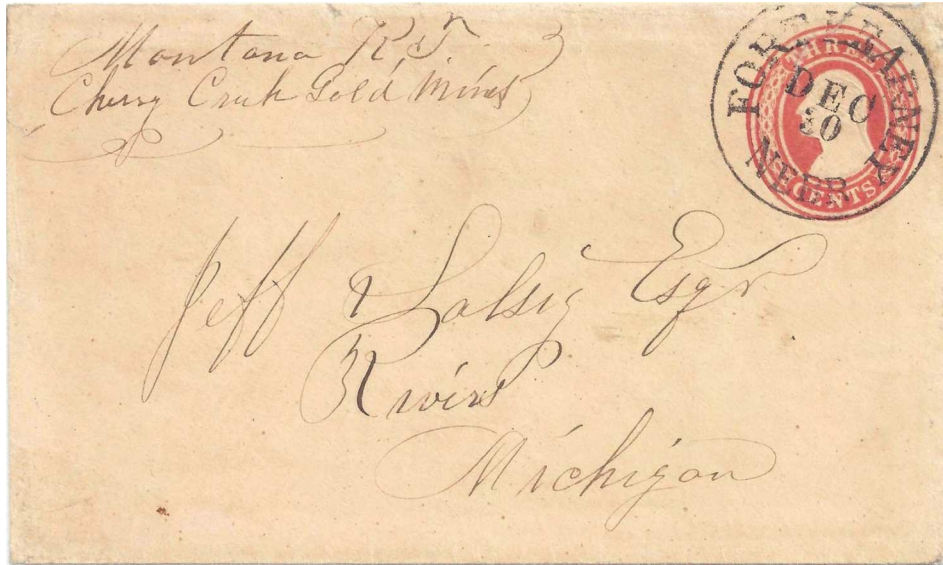 Montana K.T.
Cherry Creek Gold Mines
FORT KEARNEY
DEC
NEBR
THREE
CENTS
Jeff
Esqr
Rives
Michigan